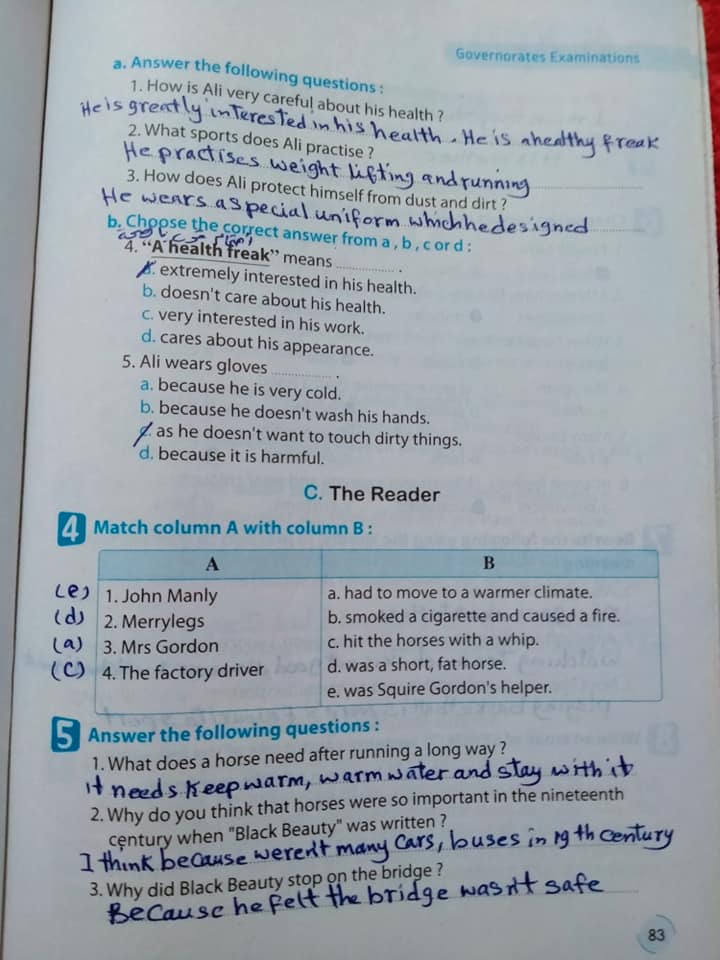 Governorates Examinations
a. Answer the following questions :
1. How is Ali very careful about his health ?
He is greatly interested in his health . He is ahealthy freak
2. What sports does Ali practise ?
He practises weight lifting and running
3. How does Ali protect himself from dust and dirt ?
He wears a special uniform which he designed
b. Choose the correct answer from a , b , c or d :
4. "A health freak" means .............. .
a. extremely interested in his health.
b. doesn't care about his health.
c. very interested in his work.
d. cares about his appearance.
5. Ali wears gloves .............. .
a. because he is very cold.
b. because he doesn't wash his hands.
c. as he doesn't want to touch dirty things.
d. because it is harmful.
C. The Reader
4 Match column A with column B :
A B
(e) 1. John Manly a. had to move to a warmer climate.
(d) 2. Merrylegs b. smoked a cigarette and caused a fire.
(a) 3. Mrs Gordon c. hit the horses with a whip.
(C) 4. The factory driver d. was a short, fat horse.
e. was Squire Gordon's helper.
5 Answer the following questions :
1. What does a horse need after running a long way ?
it needs Keep warm, warm water and stay with it
2. Why do you think that horses were so important in the nineteenth
century when "Black Beauty" was written ?
I think because weren't many Cars, buses in 19 th century
3. Why did Black Beauty stop on the bridge ?
Because he felt the bridge wasn't safe
83